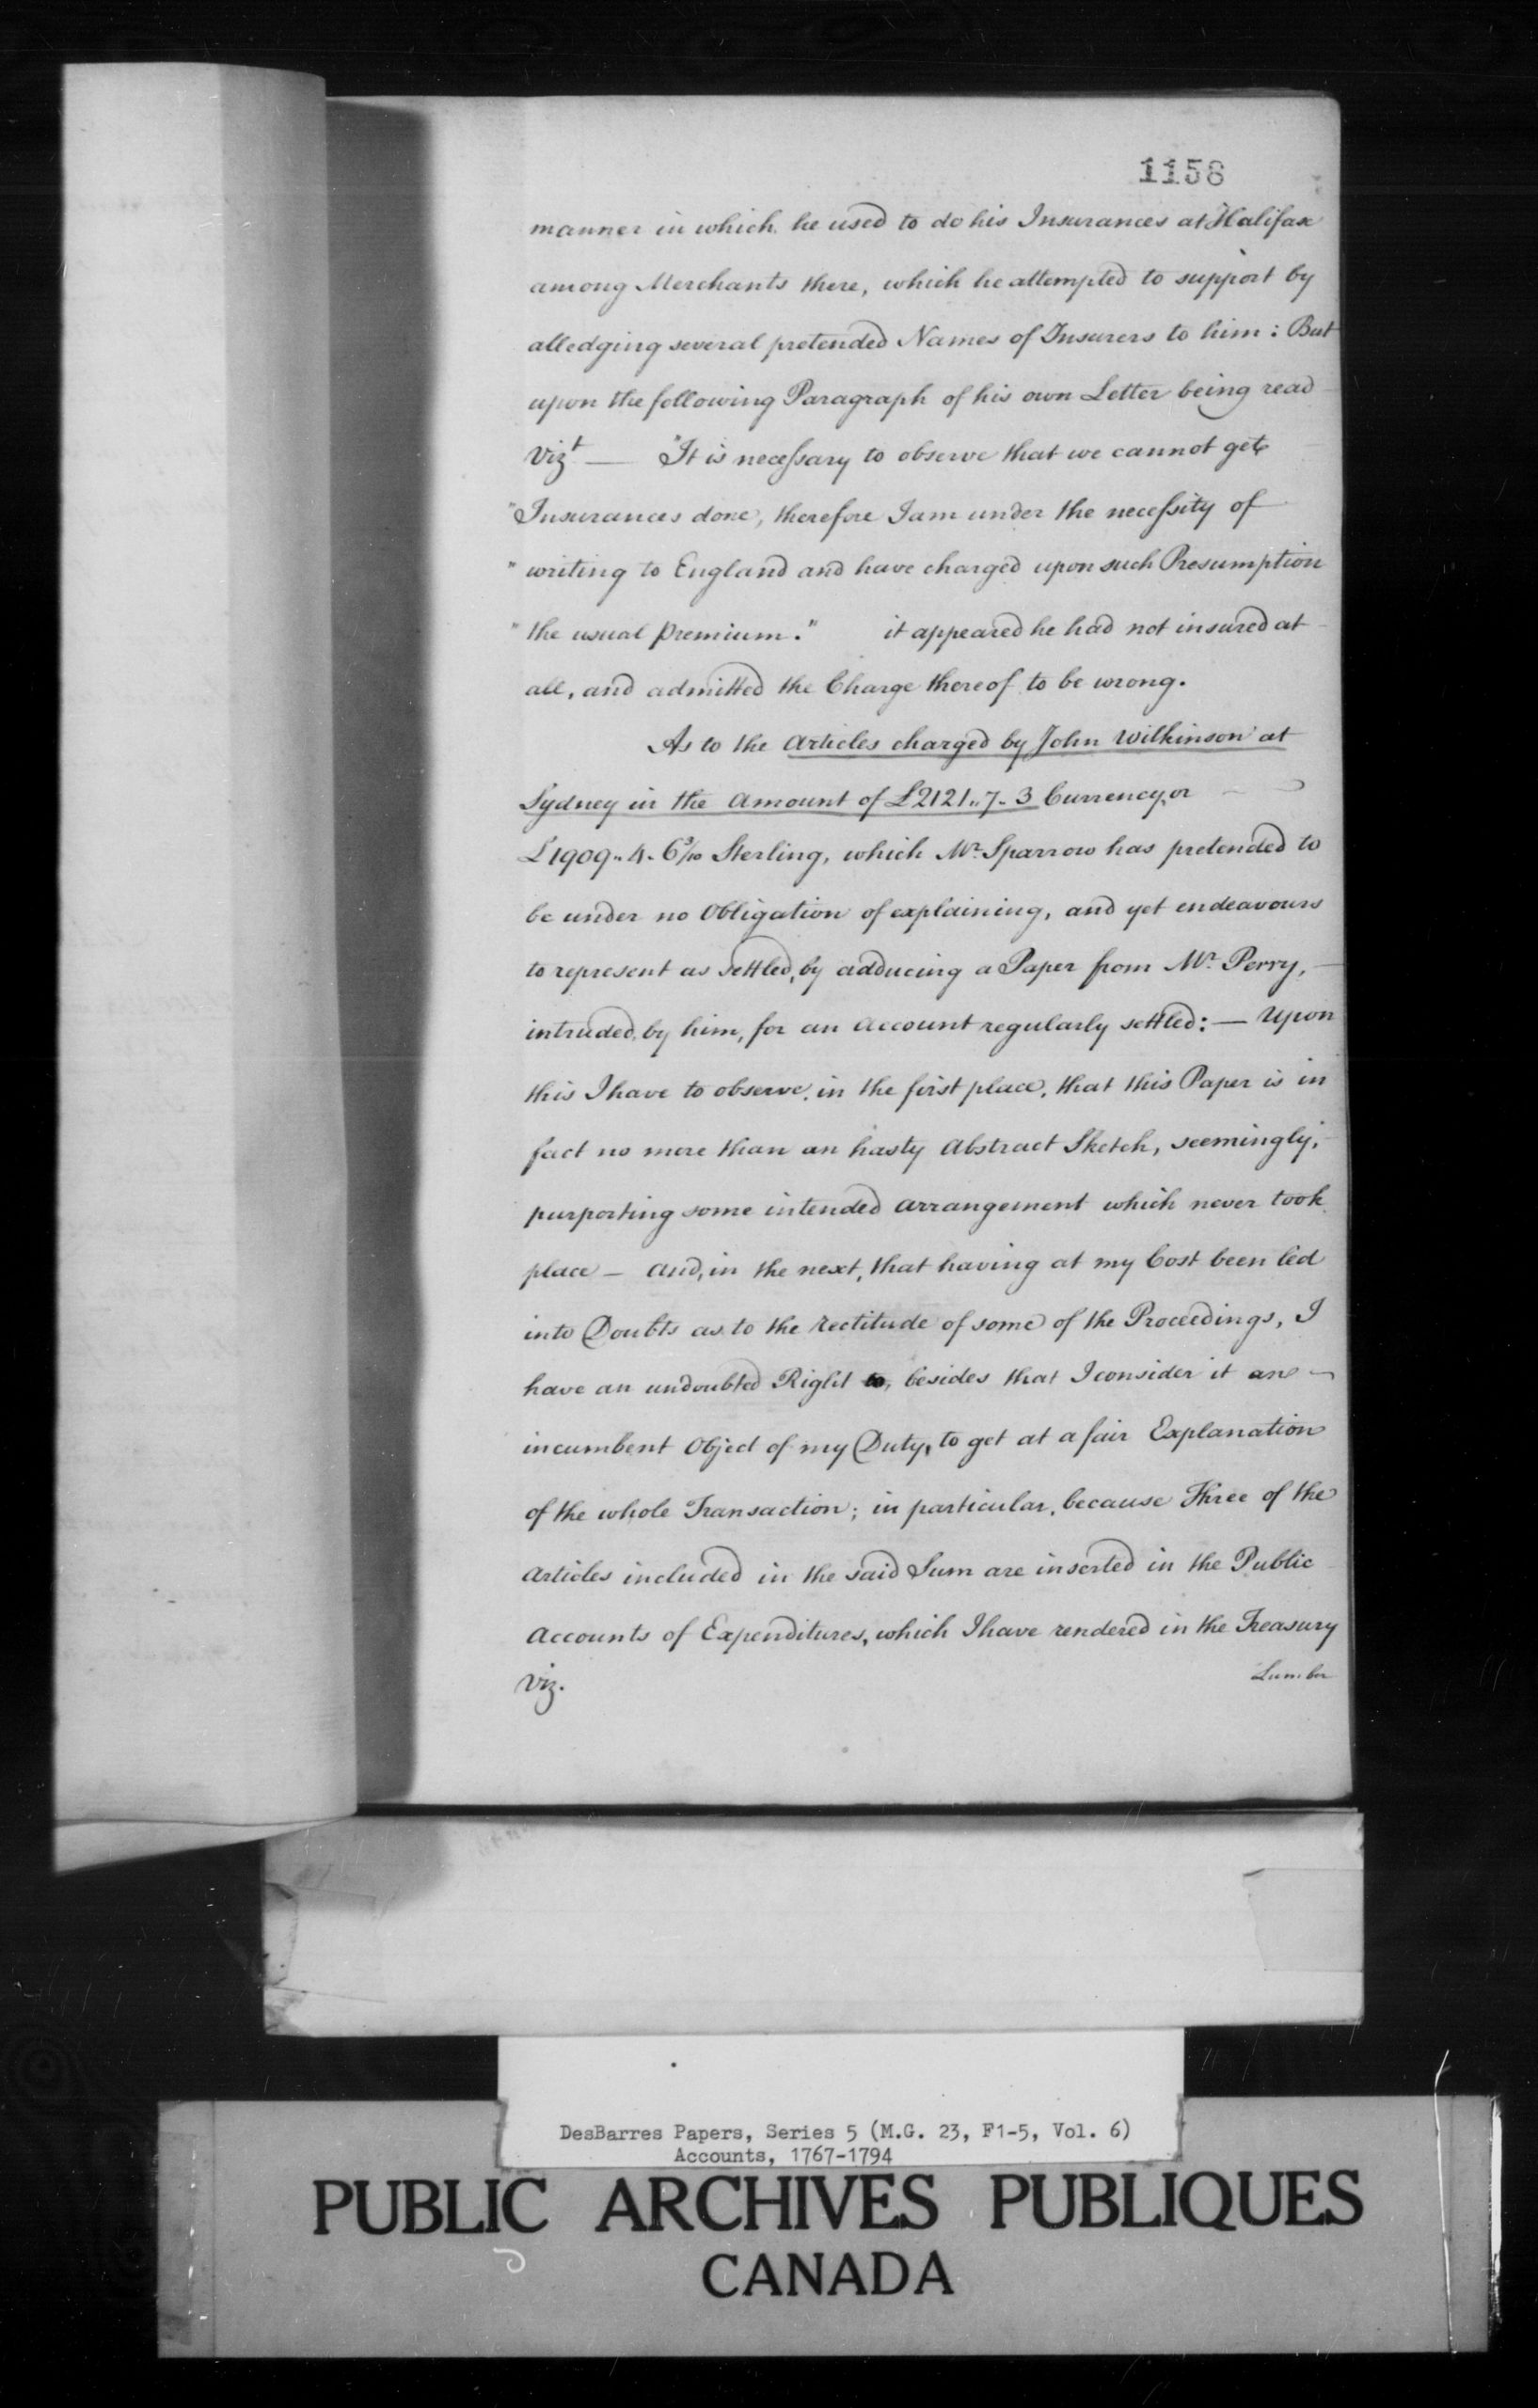 1158
manner in which he used to do his Insurances at Halifax
among Merchants there, which he attempted to support by
alledging several pretended Names of Insurers to him: But
upon the following Paragraph of his own Letter being read
Vizt — "It is necessary to observe that we cannot get
"Insurances done, therefore I am under the necessity of
"writing to England and have charged upon such Presumption
"the usual premium." it appeared he had not insured at
all, and admitted the Charge thereof to be wrong.
As to the Articles charged by John Wilkinson at
Sydney in the Amount of £2121..7..3 Currency, or
£1909..4..6 3/10 Sterling, which Mr. Sparrow has pretended to
be under no Obligation of explaining, and yet endeavours
to represent as settled, by adducing a Paper from Mr. Perry, —
intruded, by him, for an Account regularly settled: — Upon
this I have to observe, in the first place, that this Paper is in
fact no more than an hasty Abstract Sketch, seemingly,
purporting some intended Arrangement which never took
place — and, in the next, that having at my Cost been led
into Doubts as to the Rectitude of some of the Proceedings, I
have an undoubted Right to, besides that I consider it an
incumbent Object of my Duty, to get at a fair Explanation
of the whole Transaction; in particular, because Three of the
Articles included in the said Sum are inserted in the Public
Accounts of Expenditures, which I have rendered in the Treasury
viz. Lumber
DesBarres Papers, Series 5 (M.G. 23, F1-5, Vol. 6)
Accounts, 1767-1794
PUBLIC ARCHIVES PUBLIQUES
CANADA